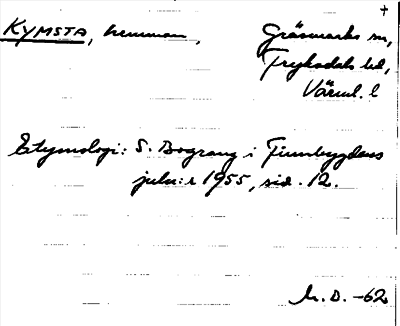 +
KYMSTA, hemman, Gräsmarks sn,
Fryksdals hd,
Värml. l
Etymologi: S. Bograng i Finnbygdens
julnr 1955, sid. 12.
M. D. -62